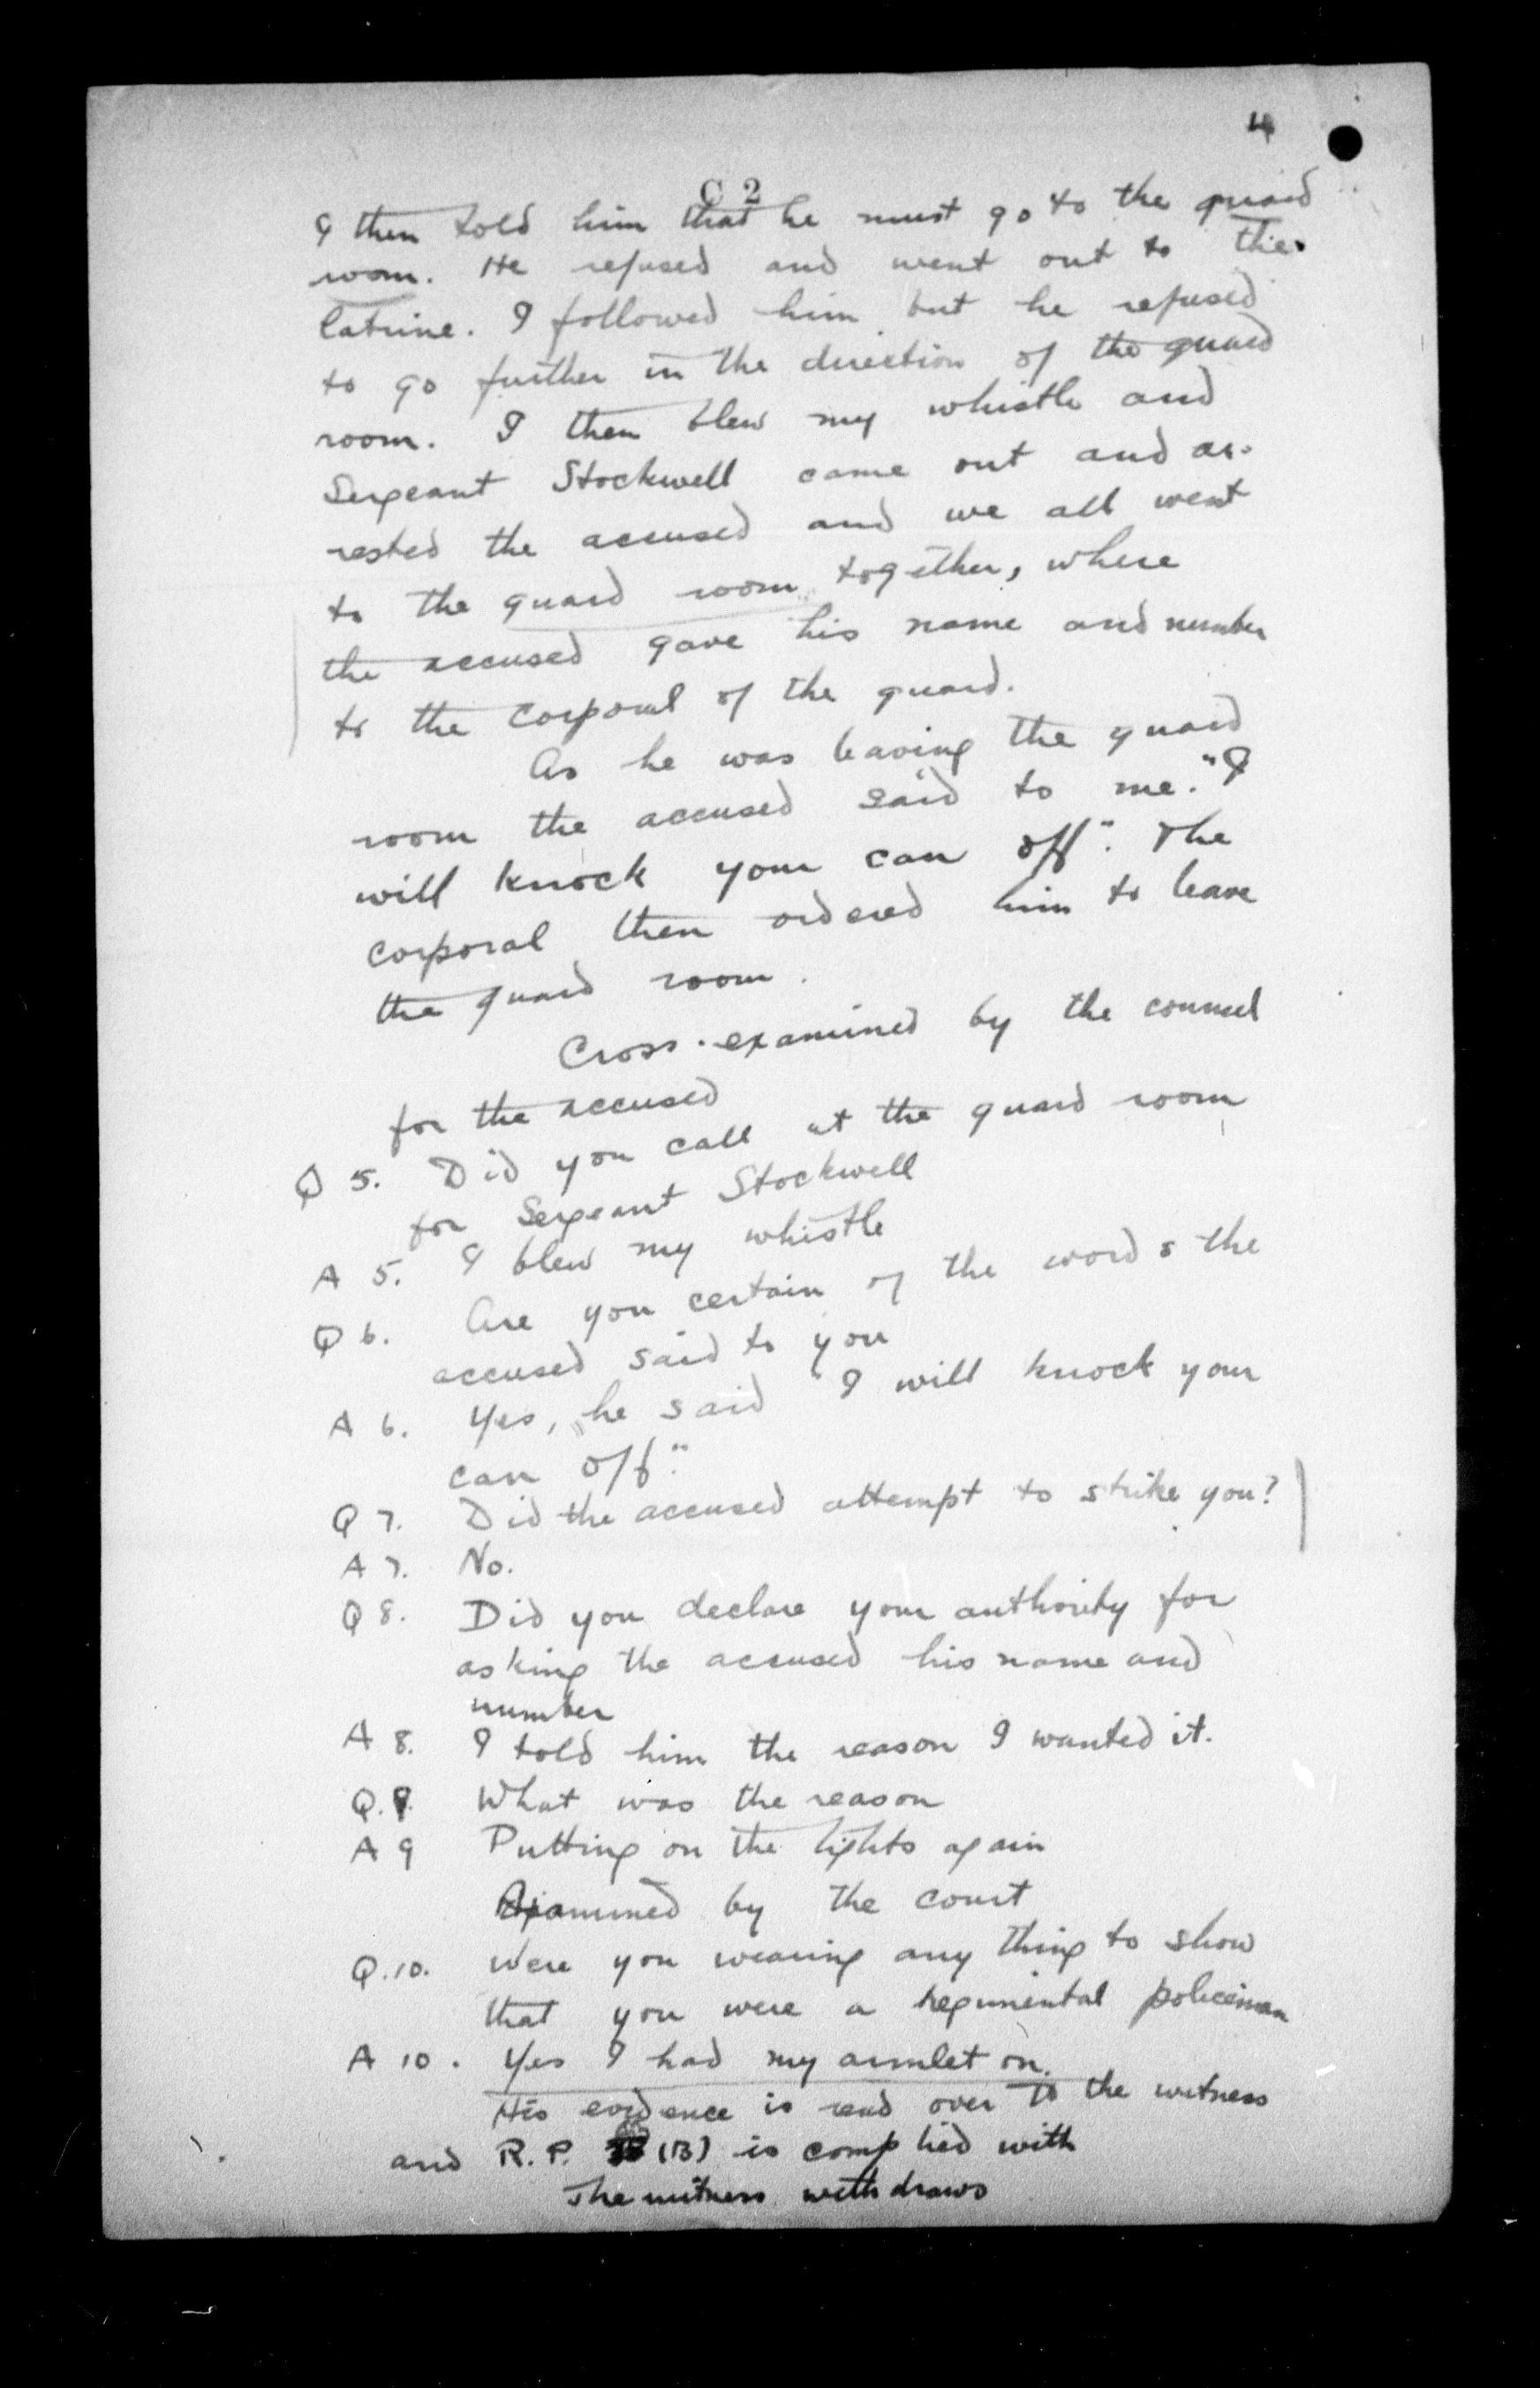 4
C 2
I then told him that he must go to the guard
room. He refused and went out to the
latrine. I followed him but he refused
to go further in the direction of the guard
room. I then blew my whistle and
Sergeant Stockwell came out and ar-
rested the accused and we all went
to the guard room together, where
the accused gave his name and number
to the Corporal of the guard.
As he was leaving the guard
room the accused said to me. "I
will knock your can off". The
corporal then ordered him to leave
the guard room.
Cross-examined by the counsel
for the accused
Q 5. Did you call at the guard room
for Sergeant Stockwell
A 5. I blew my whistle
Q 6. Are you certain of the words the
accused said to you
A 6. Yes, he said "I will knock your
can off."
Q 7. Did the accused attempt to strike you?
A 7. No.
Q 8. Did you declare your authority for
asking the accused his name and
number
A 8. I told him the reason I wanted it.
Q. 9. What was the reason
A 9 Putting on the lights again
Examined by the court
Q. 10. Were you wearing any thing to show
that you were a regimental policeman
A 10. Yes I had my armlet on.
His evidence is read over to the witness
and R. P. (B) is complied with
The witness withdraws